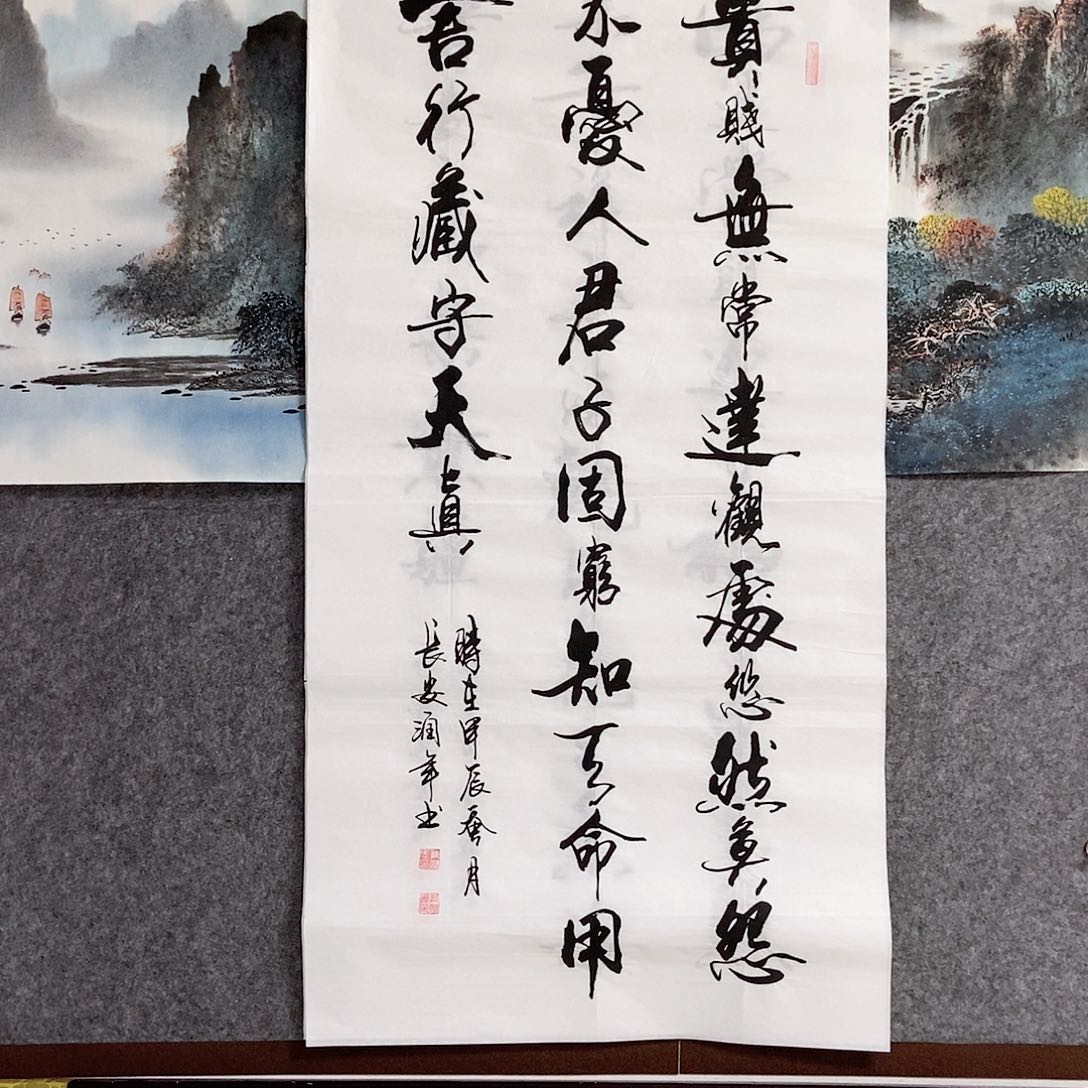 貴賤無常達觀處悠然莫怨
不憂人君子固窮知天命用
吾行藏守天真
時在甲辰蚕月
長安潤年书